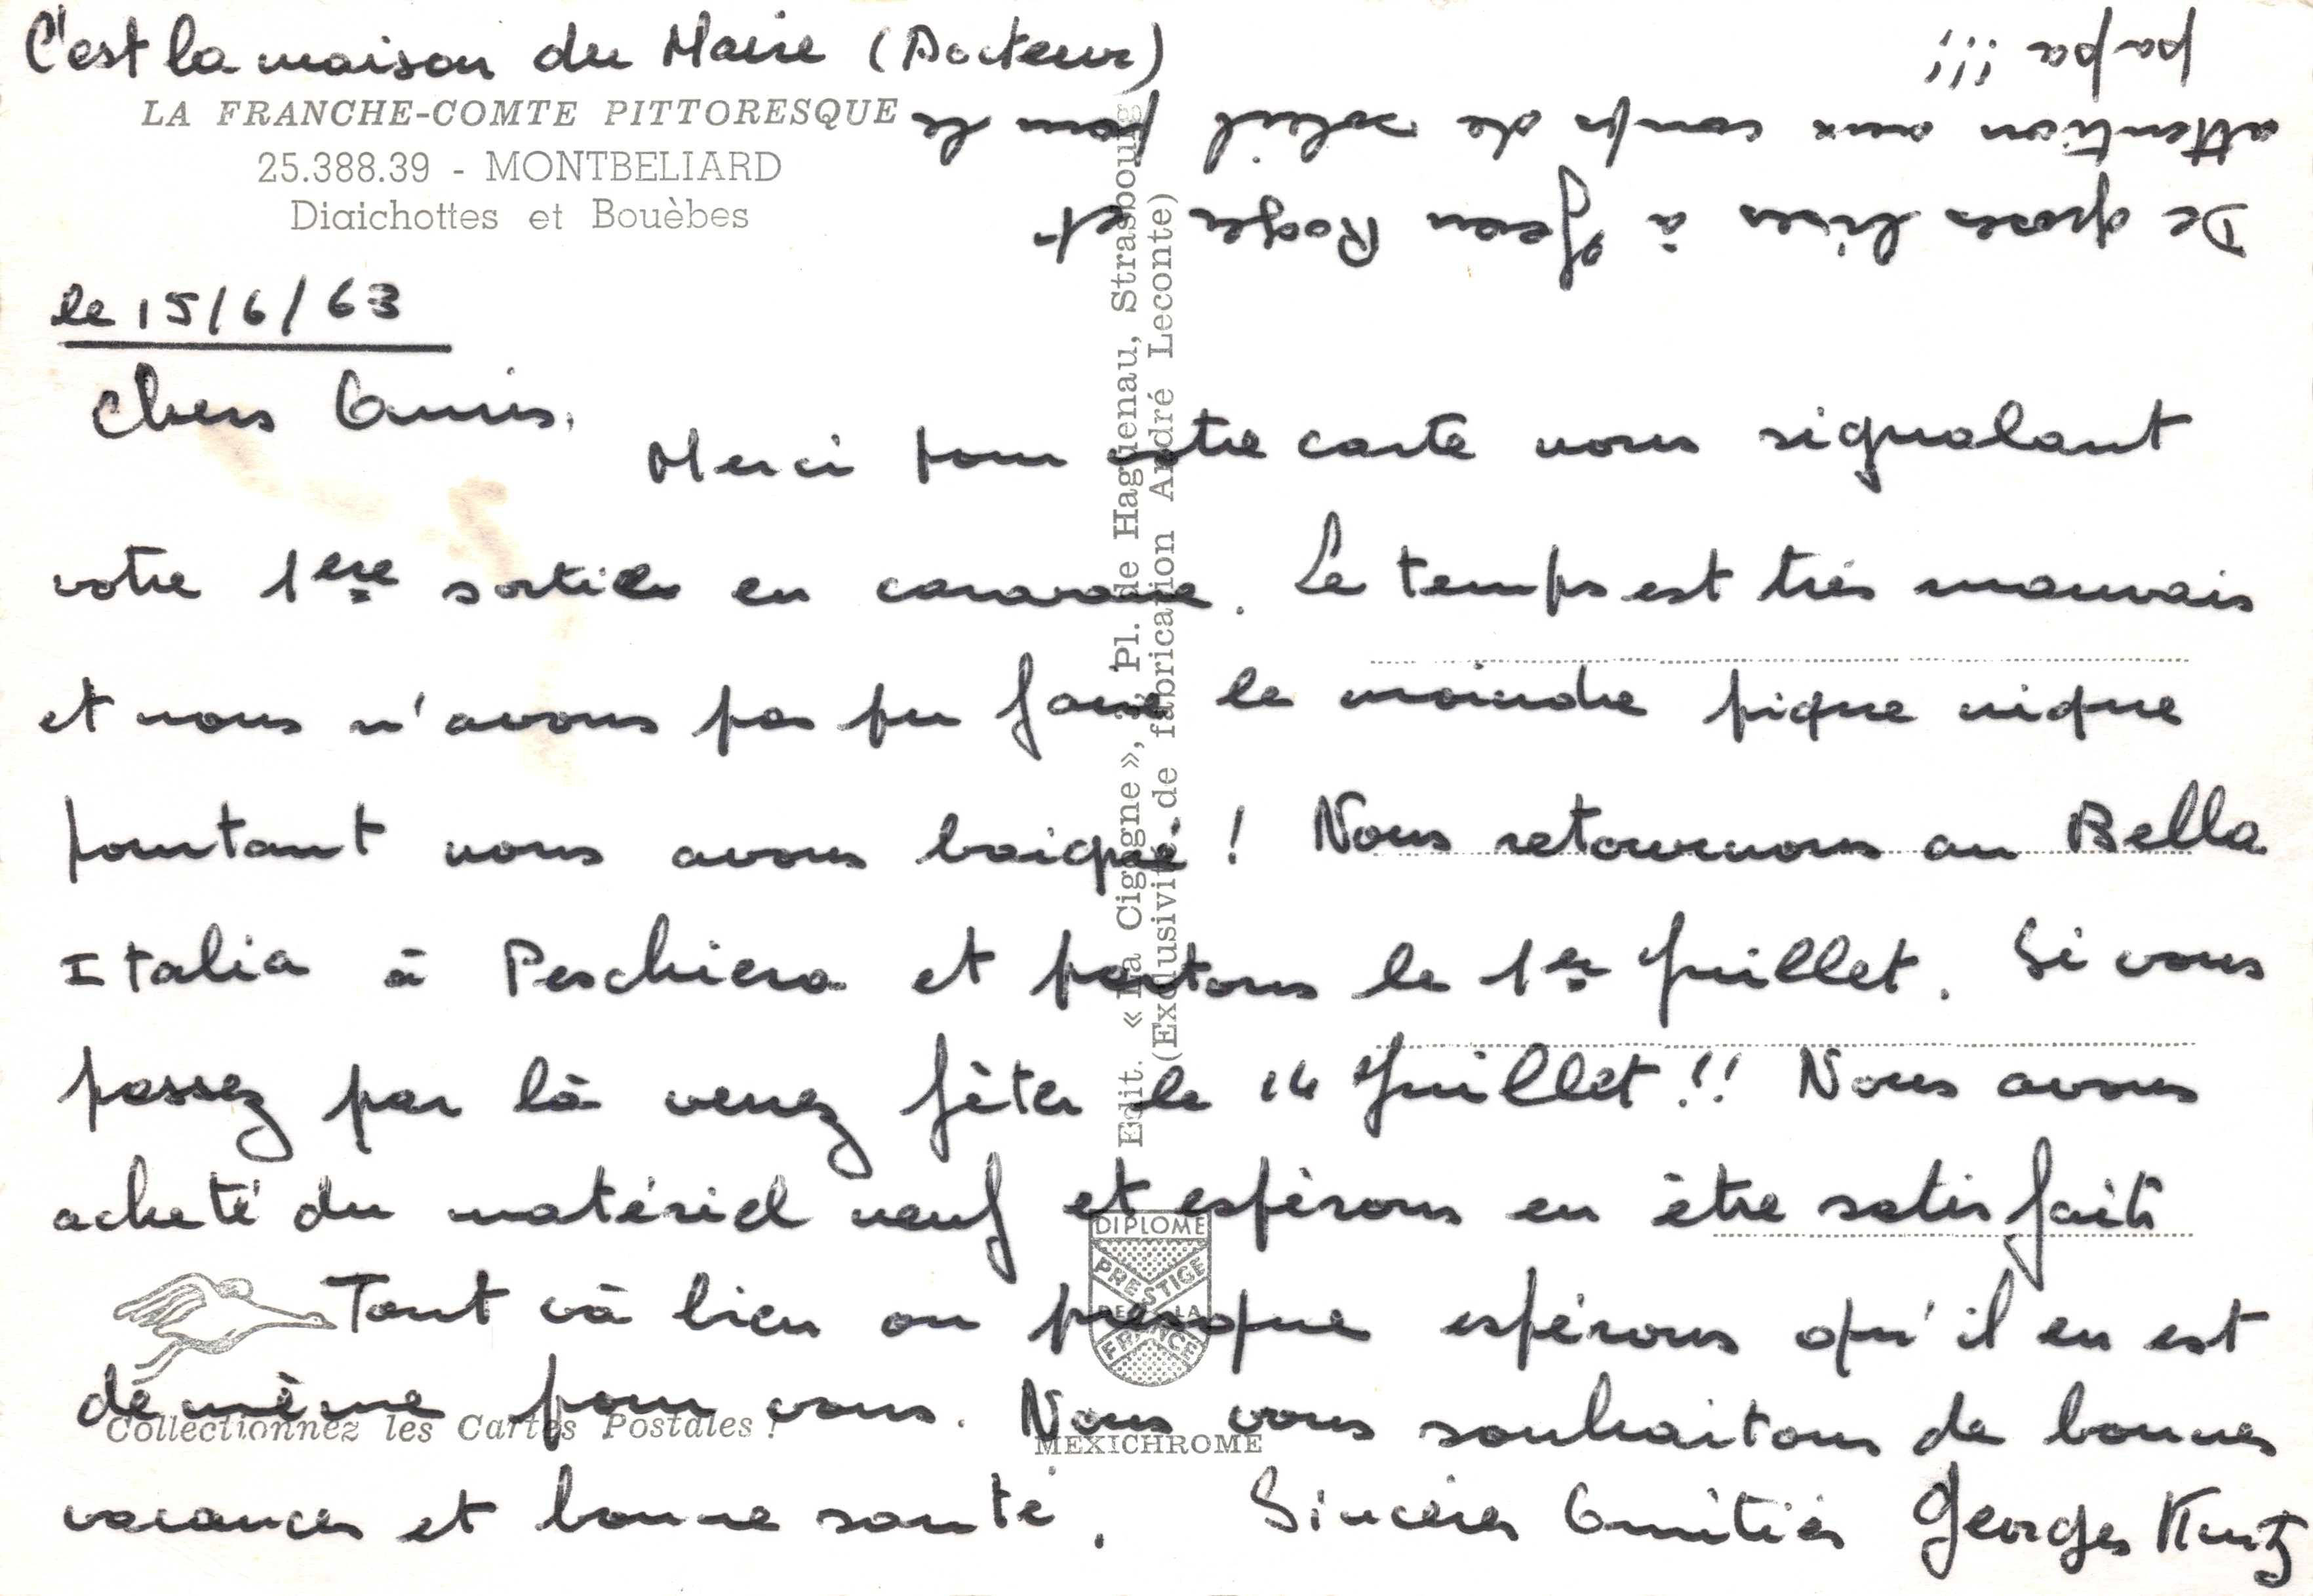 C'est la maison du Maire (Docteur)
LA FRANCHE-COMTE PITTORESQUE
25.388.39 - MONTBELIARD
Diaichottes et Bouèbes
De grosses bises à Jean Roger et
attention aux coups de soleil pour le
papa !!!
le 15/6/63
Chers Amis,
Merci pour votre carte nous signalant
votre 1ère sortie en caravane. Le temps est très mauvais
et nous n'avons pas pu faire le moindre pique nique
pourtant nous avons baigné ! Nous retournons au Bella
Italia à Peschiera et partons le 1er Juillet. Si vous
passez par là venez fêter le 14 Juillet !! Nous avons
acheté du matériel neuf et espérons en être satisfaits
Tout và bien ou presque espérons qu'il en est
de même pour vous. Nous vous souhaitons de bonnes
vacances et bonne santé. Sincères Amitiés Georges Kurtz
Edit. « La Cigogne », Pl. de Haguenau, Strasbourg
(Exclusivité de fabrication André Leconte)
DIPLOME
PRESTIGE
DE LA
FRANCE
Collectionnez les Cartes Postales !
MEXICHROME